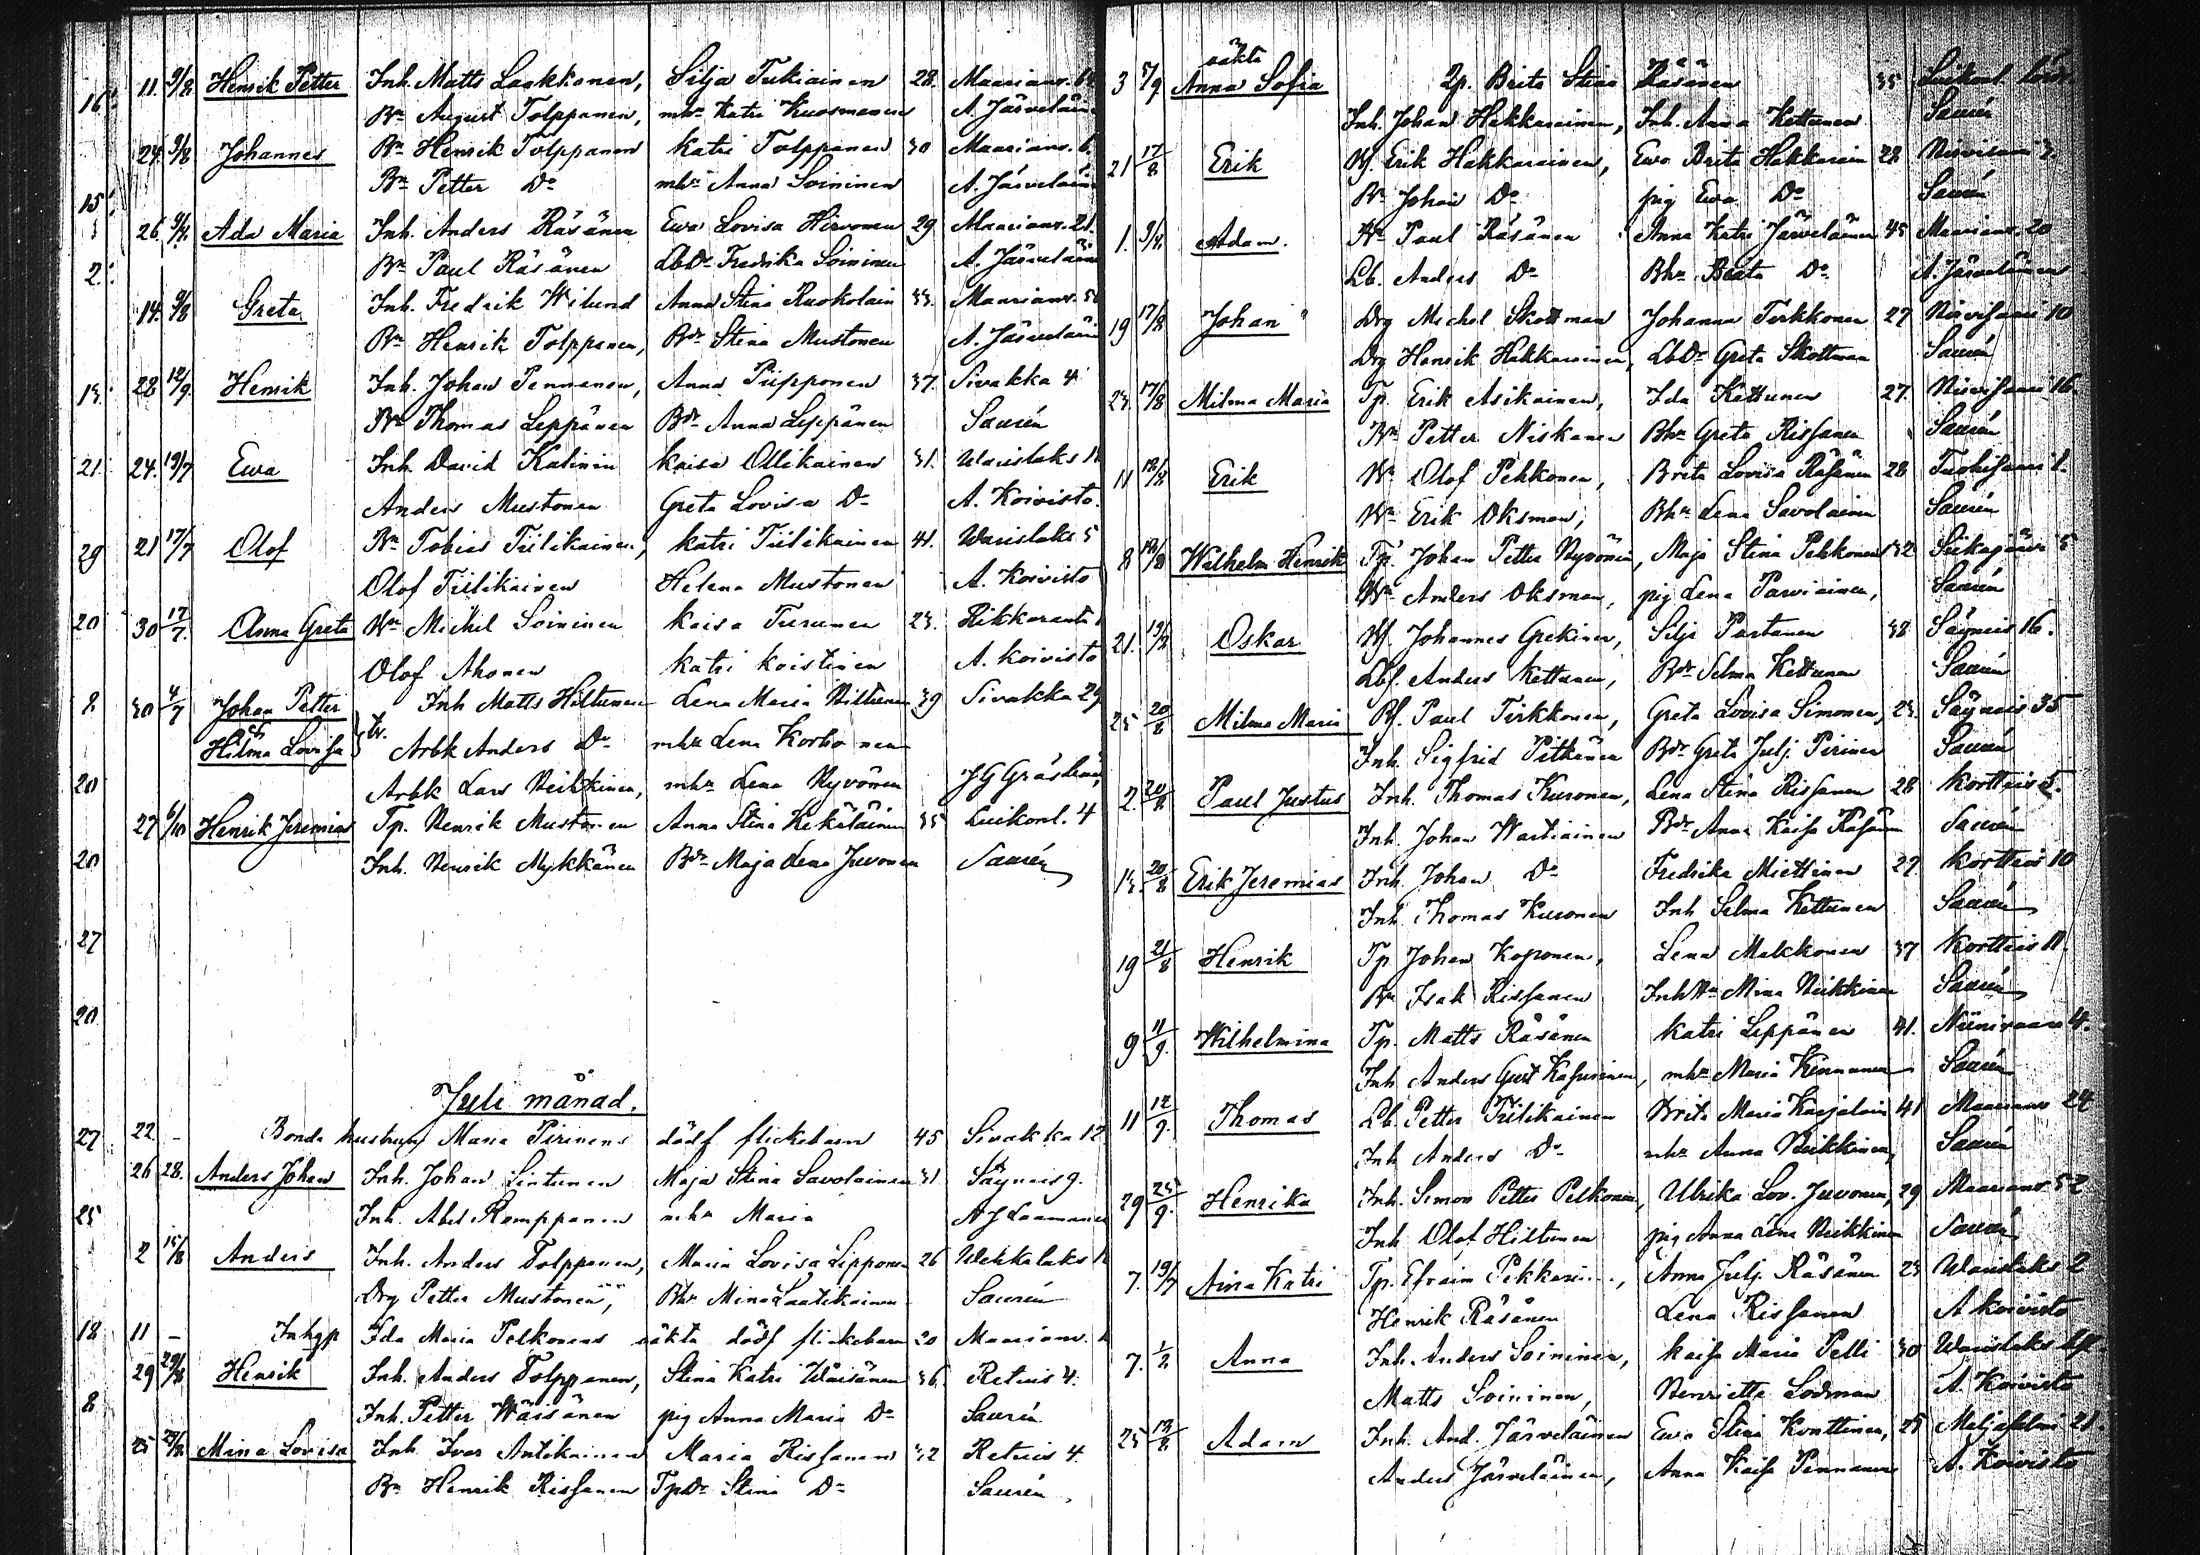 16. 11. 9/8 Henrik Petter Inh. Matts Laakkonen, Silja Tukiainen 28. Maarianv. 6
Bn August Tolppanen, mhr Katri Kuosmanen A. Järveläinen
24. 9/8 Johannes Bn Henrik Tolppanen Katri Tolppanen 30 Maarianv. 6.
15. Bn Petter Do mhr Anna Soininen A. Järveläinen
26 9/8 Ada Maria Inh. Anders Räsänen Ewa Lovisa Hirvonen 29 Maarianv. 21.
2. Bn Paul Räsänen LbDr Fredrika Soininen A. Järveläinen
14. 9/8 Greta Inh. Fredrik Wilund Anna Stina Ruokolain 33. Maarianv.
Bn Henrik Tolppanen, Bdr Stina Mustonen A. Järveläinen
13. 28 12/9. Henrik Inh. Johan Pennanen, Anna Piipponen 37. Sivakka 4
Bn Thomas Leppänen Bdr Anna Leppänen Saurén
21. 24. 19/7 Ewa Inh. David Kalinin Kaisa Ollikainen 31. Warislaks
Anders Mustonen Greta Lovisa Do A. Koivisto.
29 21 17/7 Olof Bn Tobias Tiilikainen, Katri Tiilikainen 41. Warislaks 5
Olof Tiilikainen Helena Mustonen A. Koivisto
20 30 17/7. Anna Greta Bn Michel Soininen Kaisa Turunen 23. Rikkaranta
Olof Ahonen Katri Koistinen A. Koivisto
2 30 4/7 Johan Petter Inh Matts Hiltunen Lena Maria Hiltunen 39 Sivakka 29
och Hilma Lovisa tv. Arbk Anders Do mhr Lena Korhonen
20 Arbk Lars Heikkinen, mhr Lena Hyvönen J G Gråsten
27 6/10 Henrik Jeremias Tp. Henrik Mustonen Anna Stina Kekäläinen 35 Luikonl. 4
20 Inh. Henrik Mykkänen Bdr Maja Lena Juvonen Saurén
27
20
Juli månad.
27 22 - Bonde hustrun Maria Pirinens dödf flickebarn 45 Sivakka 12
26 28. Anders Johan Inh. Johan Lintunen Maja Stina Savolainen 31 Säyneis 9.
25 Inh. Abel Romppanen mhr Maria A J Laamanen
2 15/8 Anders Inh. Anders Tolppanen, Maria Lovisa Lipponen 26 Wehkalaks
Drg Petter Mustonen, Bhr Mina Laatikainen Saurén
12 11 - Inhgp Ida Maria Pelkonens oäkta dödf flickebarn 20 Maarianv.
29 29/8 Henrik Inh. Anders Tolppanen, Stina Katri Wäisänen 36. Retuis 4.
8 Inh. Petter Wäisänen pig Anna Maria Do Saurén
25 29/8 Mina Lovisa Inh. Ivar Antikainen Maria Rissanen 32 Retuis 4.
Bn Henrik Rissanen TpDr Stina Do Saurén.
oäkta
3 7/9 Anna Sofia Ip. Brita Stina Räsänen 35 Luikonl.
Inh. Johan Hakkarainen, Inh. Anna Kettunen Saurén
21 17/8 Erik Bf. Erik Hakkarainen, Ewa Brita Hakkarain 28 Niinisaari 2.
Bn Johan Do pig Ewa Do Saurén
1. 9/8. Adam. Bn Paul Räsänen Anna Katri Järveläinen 45 Maarianv. 20
Lb. Anders Do Bhr Beata Do A. Järveläinen
19 17/8 Johan Drg Michel Skottman Johanna Tirkkonen 27 Niinisaari 10
Drg Henrik Hakkarainen, LbDr Greta Skottman Saurén
23. 17/8 Milma Maria Tp. Erik Asikainen, Ida Kettunen 27. Niinisaari 16.
Bn Petter Niskanen Bhr Greta Rissanen Saurén
11 18/8 Erik Bn Olof Pekkonen, Brita Lovisa Räsänen 28 Tuohisaari 1.
Bn Erik Oksman, Bhr Lena Savolainen Saurén
8 18/8 Wilhelm Henrik Tp. Johan Petter Hyvönen, Maja Stina Pekkonen 32 Siikajärvi 5
Bn Anders Oksman, pig Lena Parviainen, Saurén
21. 19/8 Oskar Bf. Johannes Grekinen, Silja Partanen 38 Säyneis 16.
Lbf. Anders Kettunen, Bdr Selma Kettunen Saurén
25 20/8 Milma Maria Bf. Paul Tirkkonen, Greta Lovisa Simonen, 23. Säyneis 35
Inh. Sigfrid Pitkänen Bdr Greta Julj. Pirinen Saurén
2 20/8 Paul Justus Inh. Thomas Kuronen, Lena Stina Rissanen 28 Kortteis 5.
Inh. Johan Wartiainen Bdr Anna Kaisa Räsänen Saurén
13 20/8 Erik Jeremias Inh. Johan Do Fredrika Miettinen 27 Kortteis 10
Inh. Thomas Kuronen Inh Selma Kettunen Saurén
19 21/8 Henrik Tp Johan Koponen, Lena Malkkonen 37 Kortteis 11.
Bn Isak Rissanen Inh Hr Mina Heikkinen Saurén
9 11/9. Wilhelmina Tp. Matts Räsänen Katri Leppänen 41. Niinivaara 4.
Inh Anders Gust Kasurinen, mhr Maria Kinnunen Saurén
11 12/9. Thomas Lb. Petter Tiilikainen Brita Maria Karjalain 41 Maarianv 24
Inh Anders Do mhr Anna Heikkinen, Saurén
29 25/9. Henrika Inh. Simon Petter Pelkonen, Ulrika Lov. Juvonen, 29 Maarianv. 52
Inh Olof Hiltunen pig Anna Lena Heikkinen Saurén
7. 19/7 Aina Katri Tp. Efraim Pekkarinen, Anna Julj. Räsänen 23 Warislaks 2
Henrik Räsänen Lena Rissanen A Koivisto
7. 1/8 Anna Inh. Anders Soininen, Kaisa Maria Pelli 30 Warislaks
Matts Soininen, Henriette Lodman A. Koivisto
25 13/8 Adam Inh. And. Järveläinen Ewa Stina Konttinen, 25 Miljaselmi 21.
Anders Järveläinen, Anna Kaisa Pennanen A. Koivisto